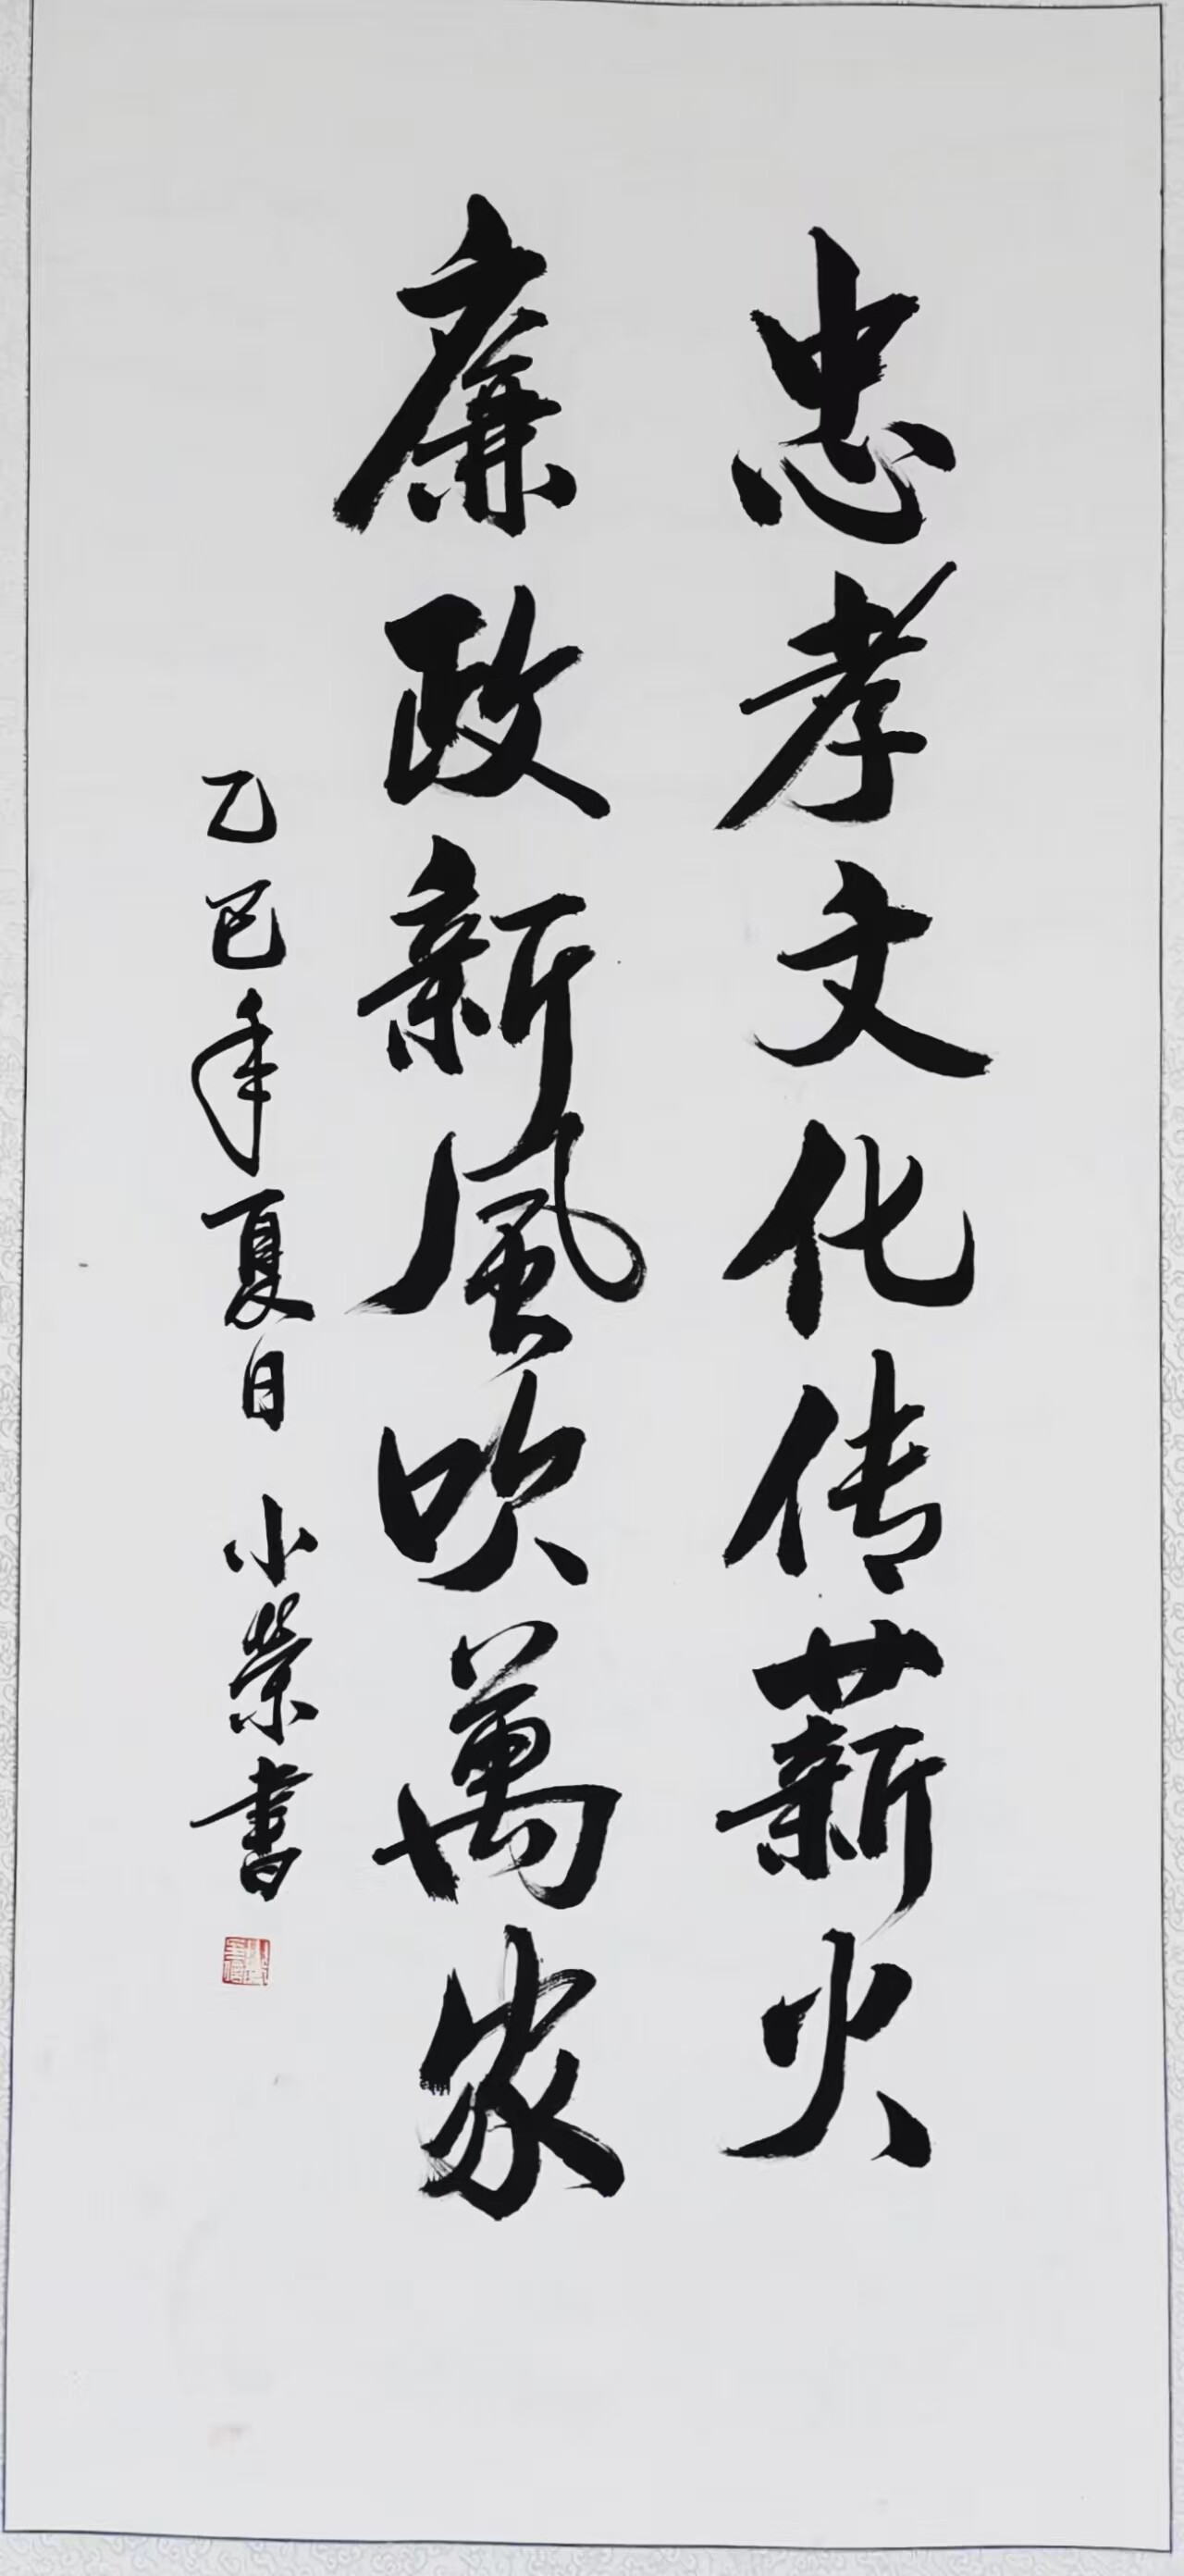 忠孝文化传薪火
廉政新風吹萬家
乙巳年夏日 小荣書